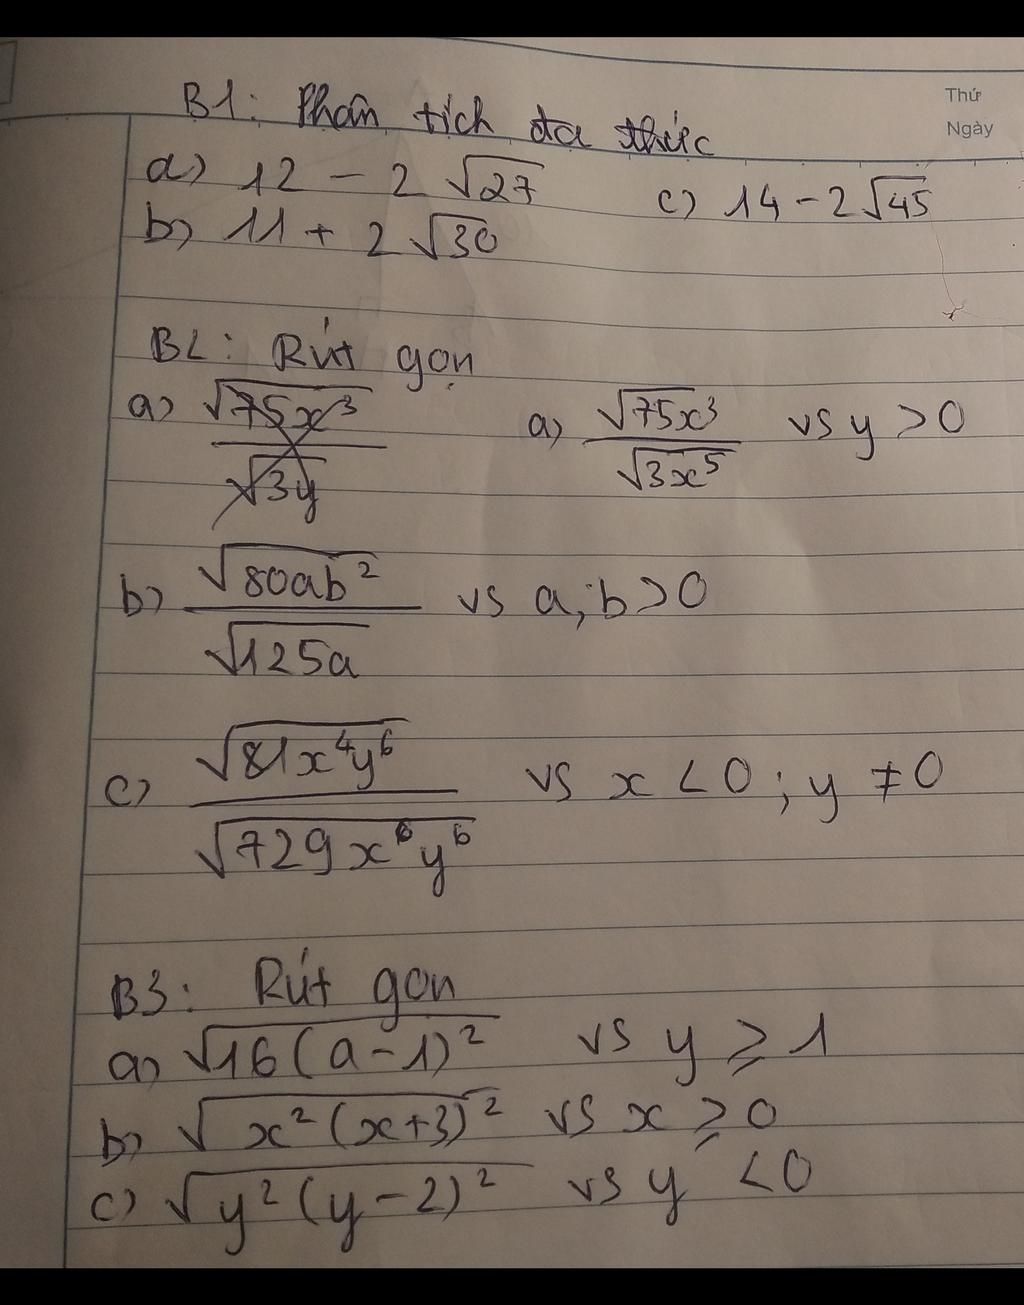 Thứ
Ngày
B1: Phân tích đa thức
a) 12 - 2√27 c) 14 - 2√45
b) 11 + 2√30
B2: Rút gọn
a) √75x³ / √3y a) √75x³ / √3x⁵ vs y > 0
b) √80ab² / √125a vs a, b > 0
c) √81x⁴y⁶ / √729x⁶y⁶ vs x < 0 ; y ≠ 0
B3: Rút gọn
a) √16(a-1)² vs y ≥ 1
b) √x²(x+3)² vs x ≥ 0
c) √y²(y-2)² vs y < 0